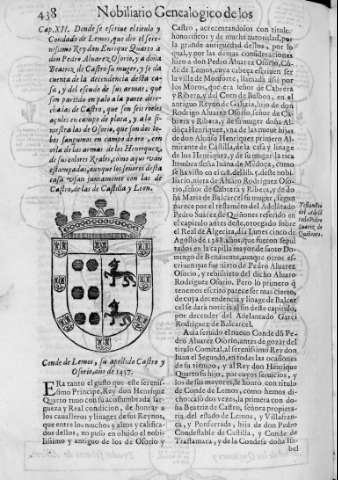 438 Nobiliario Genealogico de los
Cap. XII. Donde se escriue el titulo y
Condado de Lemos, que dio el sere-
nissimo Rey don Enrique Quarto a
don Pedro Aluarez Osorio, y a doña
Beatriz de Castro su muger, y se da
cuenta de la decendencia desta ca-
sa, y del escudo de sus armas, que
son partido en palo a la parte dere-
cha las de Castro, que son seis roeles
açules en campo de plata, y a la si-
niestra las de Osorio, que son dos lo-
bos sanguinos en campo de oro, con
orla de las armas de los Henriquez,
de sus colores Reales, como aqui van
estampadas, aunque los señores desta
casa vsan juntamente con las de
Castro, de las de Castilla y Leon.
Conde de Lemos, su apellido Castro y
Osorio, año de 1457.
ERa tanto el gusto que este serenis-
simo Principe, Rey don Henrique
Quarto tuuo con su acostumbrada lar-
gueza y Real condicion, de honrar a
los caualleros y linages de sus Reynos,
que entre los muchos y altos y califica-
dos dellos, no puso en oluido al nobi-
lissimo y antiguo de los de Osorio y
Castro, acrecentandolos con titulo
honorifico y de mucha autoridad, por
la grande antiguedad dellos, por lo
qual, y por las demas consideraciones
hizo a don Pedro Aluarez Osorio, Cõ-
de de Lemos, cuya cabeça escriuen ser
la villa de Monforte, llamada assi por
los Moros, que era señor de Cabrera
y Ribera, y del Coto de Balboa, en el
antiguo Reyno de Galizia, hijo de don
Rodrigo Aluarez Osorio, señor de Ca-
brera y Ribera, y de su muger doña Al-
donça Henriquez, vna de las nueue hijas
de don Alonso Henriquez primero Al-
mirante de Castilla, de la casa y linage
de los Henriquez, y de su muger la rica
hembra doña Iuana de Mendoça, como
se ha visto en el desta casa
nissimo, nieto de Aluaro Rodriguez Oso-
rio, señor de Cabrera y Ribera, y de do-
ña Maria de Balcarcel su muger, segun
parece por el testamẽto del Adelantado
Pedro Suarez de Quiñones referido en
el capitulo antes deste, otorgado sobre
el Real de Algezira, dia Lunes cinco de
Agosto de 1388. años, que fueron sepul-
tados en la capilla mayor de santo Domin-
go de Benauente, aunque otros es-
criuan que fue nieto de Pedro Aluarez
Osorio, y rebisnieto del dicho Aluaro
Rodriguez Osorio. Pero lo primero q̃
tenemos escrito parece ser mas cierto,
de cuya decendencia y linage de Balcar-
cel se dara noticia en este dicho capitulo,
por decender del Adelantado Garci
Rodriguez de Balcarcel.
Auia seruido el nueuo Conde dõ Pe-
dro Aluarez Osorio, antes de gozar del
titulo Comital, al serenissimo Rey don
Iuan el Segundo, en todas las ocasiones
de su tiempo, y al Rey don Henrique
Quarto su hijo, por cuyos seruicios, y
los de sus mayores, le honrò con titulo
de Conde de Lemos, como hemos di-
cho, casò dos vezes, la primera con do-
ña Beatriz de Castro, señora propieta-
ria del estado de Lemos, y Villafranca,
y Ponferrada, hija de don Pedro
Condestable de Castilla, y Conde de
Trastamara, y de la Condesa doña Isa-
bel
Testamẽto
del Adelã-
tado Pedro
Suarez de
Quiñones.